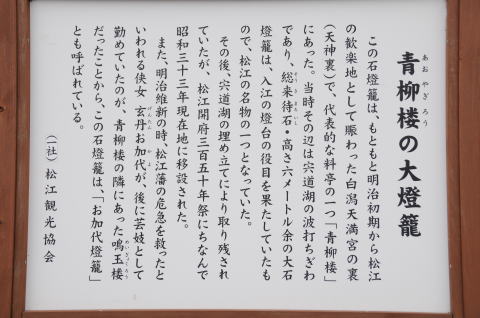 青柳楼の大燈籠
あおやぎろう
この石燈籠は、もともと明治初期から松江
の歓楽地として賑わった白潟天満宮の裏
(天神裏)で、代表的な料亭の一つ「青柳楼」
にあった。当時その辺は宍道湖の波打ちぎわ
であり、総来待石・高さ六メートル余の大石
そうきまちいし
燈籠は、入江の燈台の役目を果たしていたも
ので、松江の名物の一つとなっていた。
その後、宍道湖の埋め立てにより取り残され
ていたが、松江開府三百五十年祭にちなんで
昭和三十三年現在地に移設された。
また、明治維新の時、松江藩の危急を救ったと
いわれる侠女 玄丹お加代が、後に芸妓として
げんたん かよ
勤めていたのが、青柳楼の隣にあった鳴玉楼
めいぎょくろう
だったことから、この石燈籠は、「お加代燈籠」
とも呼ばれている。
(社)松江観光協会